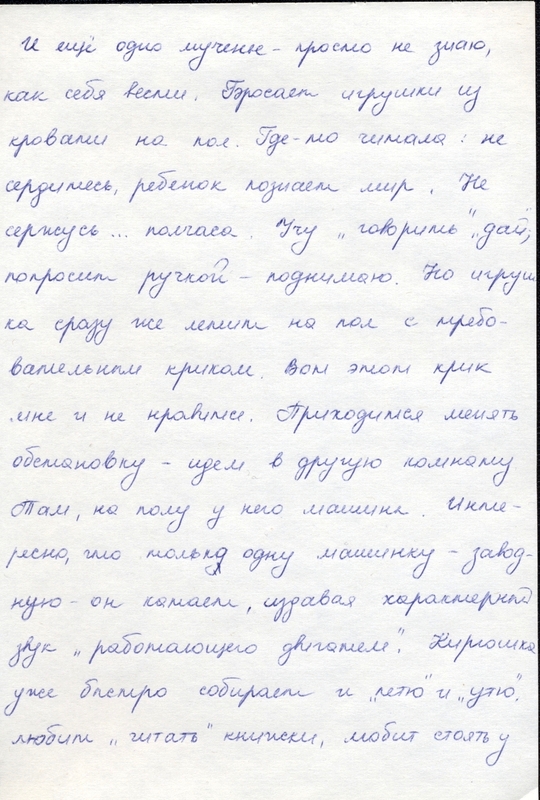 И ещё одно мученье - просто не знаю,
как себя вести. Бросает игрушки из
кровати на пол. Где-то читала: не
сердитесь, ребёнок познает мир. Не
сержусь... полчаса. Учу „говорить" „дай",
попросит ручкой - поднимаю. Но игруш
ка сразу же летит на пол с требо-
вательным криком. Вот этот крик
мне и не нравится. Приходится менять
обстановку - идем в другую комнату
Там, на полу у него машины. Инте-
ресно, что только одну машинку - завод-
ную - он катает, издавая характерный
звук „работающего двигателя". Кирюшка
уже быстро собирает и
любит „читать" книжки, любит стоять у